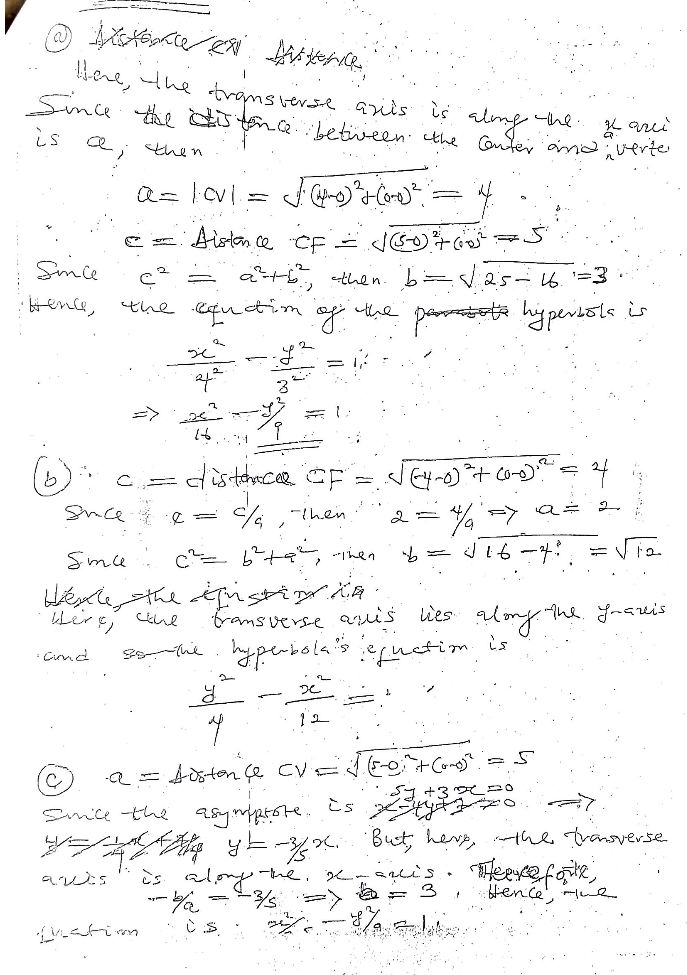 (a)
Here, the transverse axis is along the x axi
Since the distance between the center and verte
is a, then
a = |CV| = √(4-0)²+(0-0)² = 4.
c = Distance CF = √(5-0)²+(0-0)² = 5
Since c² = a²+b², then b = √25-16 = 3.
Hence, the equation of the hyperbola is
x²/4² - y²/3² = 1.
=> x²/16 - y²/9 = 1
(b) c = distance CF = √(-4-0)²+(0-0)² = 4
Since e = c/a, then 2 = 4/a => a = 2
Since c² = b²+a², then b = √16-4 = √12
Here, the transverse axis lies along the y-axis
and the hyperbola's equation is
y²/4 - x²/12 =
(c) a = distance CV = √(5-0)²+(0-0)² = 5
Since the asymptote is 5y+3x=0 =>
y = -3/5 x. But, here, the transverse
axis is along the x-axis. Therefore,
-b/a = -3/5 => b = 3. Hence, the
quation is - y²/9 = 1.